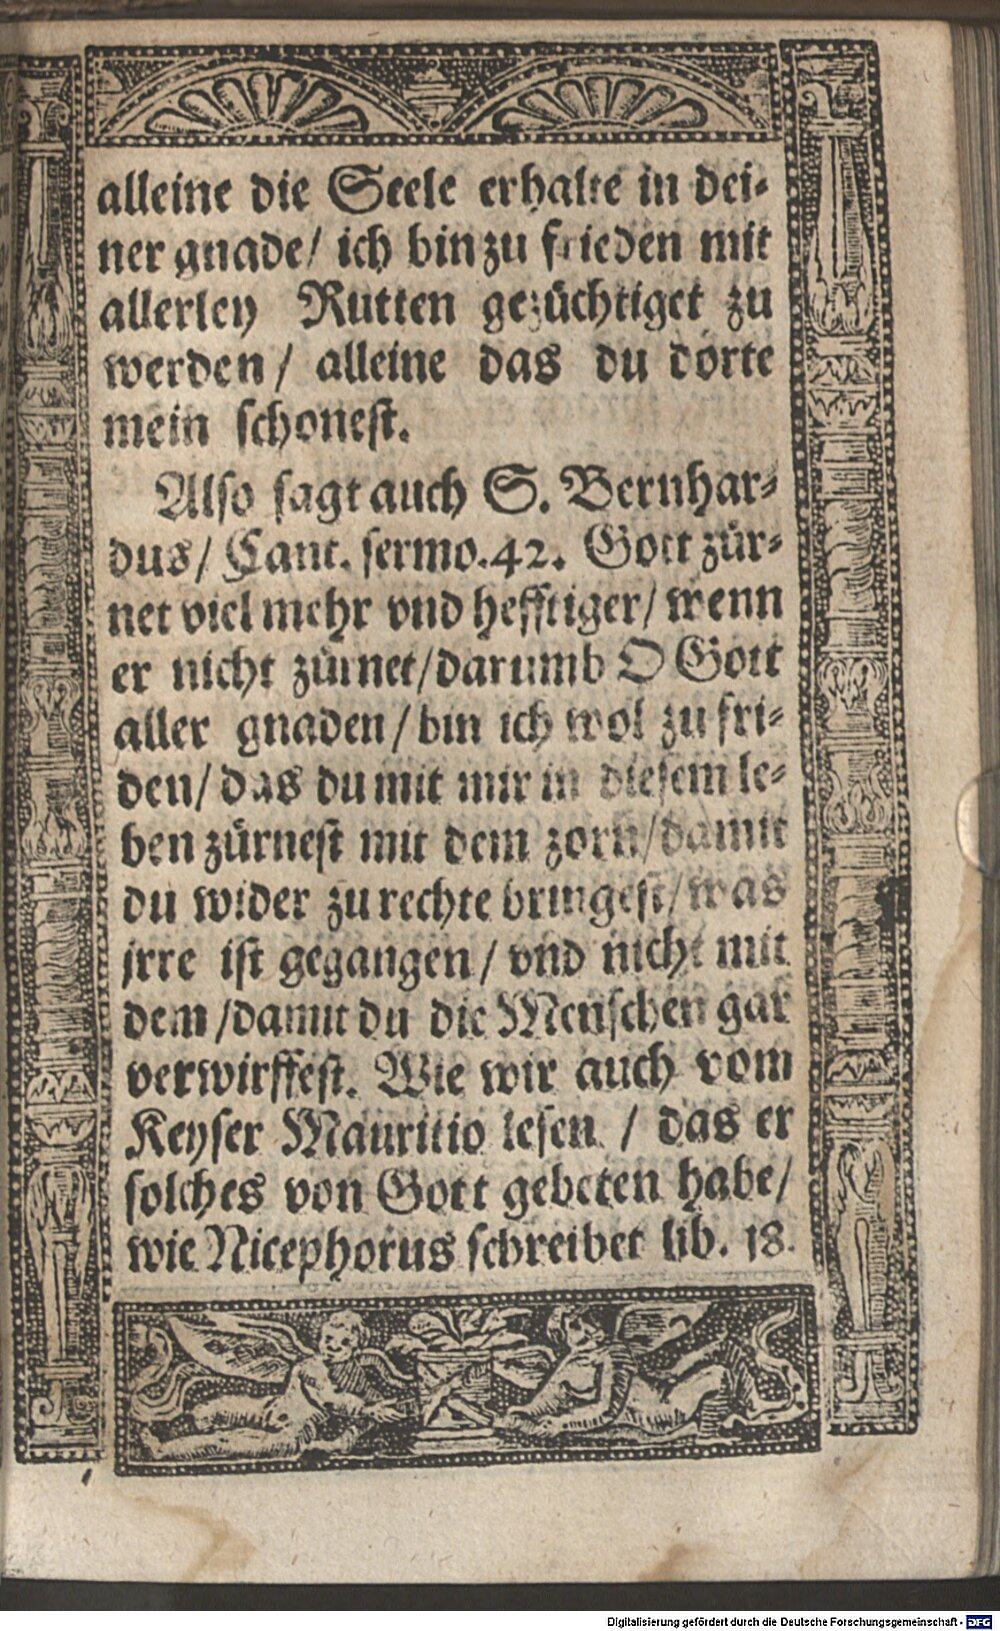 alleine die Seele erhalte in dei-
ner gnade/ ich bin zu frieden mit
allerley Rutten gezüchtiget zu
werden/ alleine das du dorte
mein schonest.
Also sagt auch S. Bernhar-
dus/ Cant. sermo. 42. Gott zür-
net viel mehr vnd hefftiger/ wenn
er nicht zürnet/ darumb O Gott
aller gnaden/ bin ich wol zu fri-
den/ das du mit mir in diesem le-
ben zürnest mit dem zorn/ damit
du wider zu rechte bringest/ was
jrre ist gegangen/ vnd nicht mit
dem/ damit du die Menschen gar
verwirffest. Wie wir auch vom
Keyser Mauritio lesen/ das er
solches von Gott gebeten habe/
wie Nicephorus schreibet lib. 18.
Digitalisierung gefördert durch die Deutsche Forschungsgemeinschaft - DFG